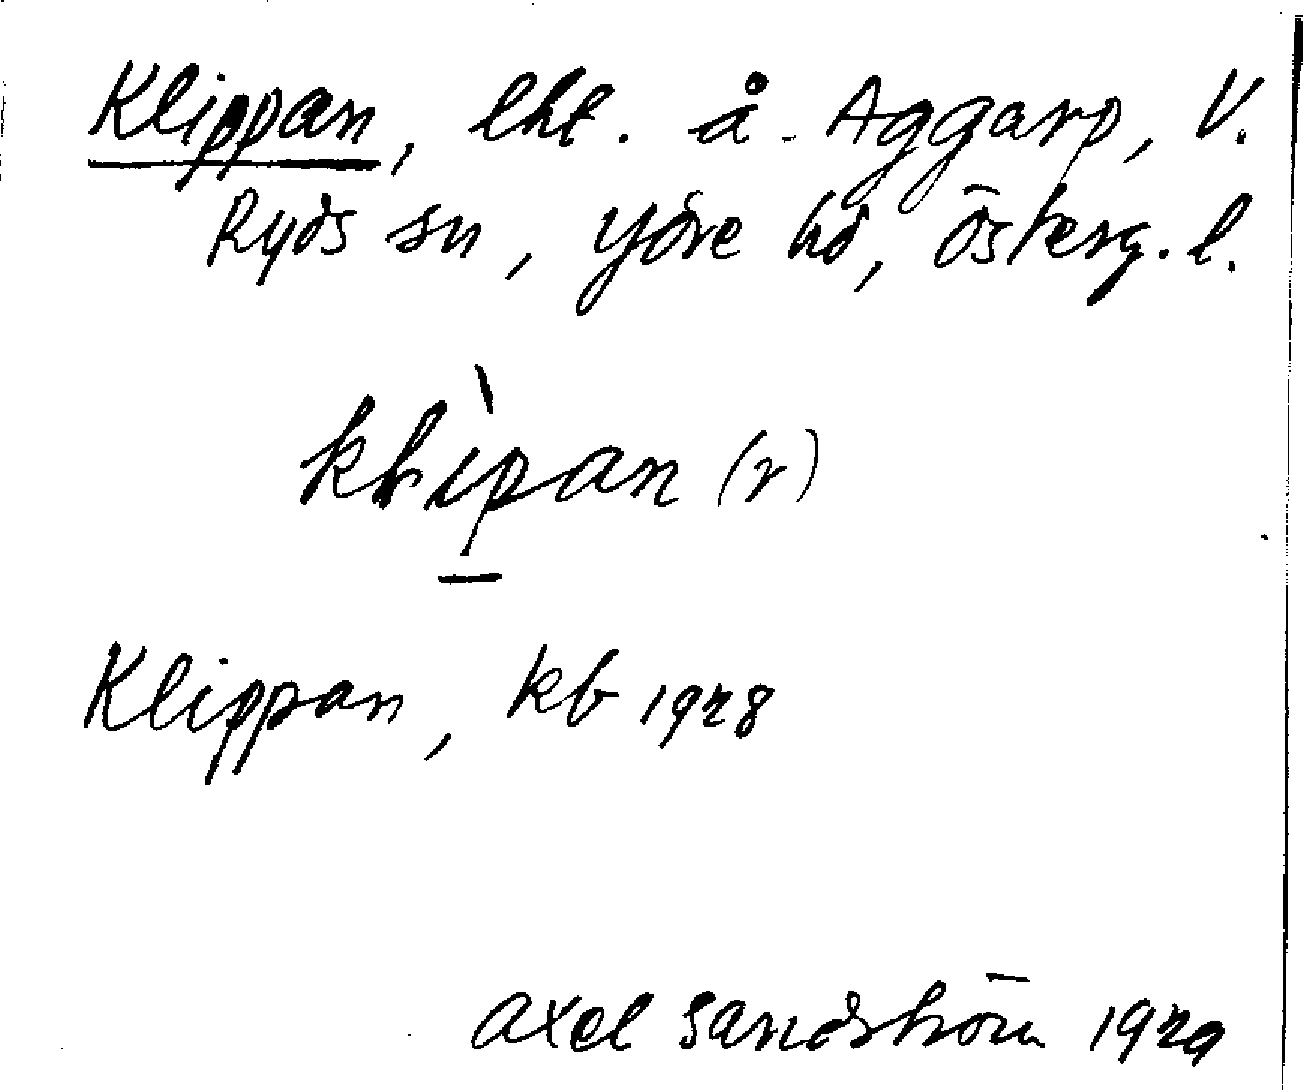 Klippan, lht. å. Aggarp, V.
Ryds sn, Ydre hd, Österg. l.
klìpan (r)
Klippan, kb 1928
Axel Sandström 1929